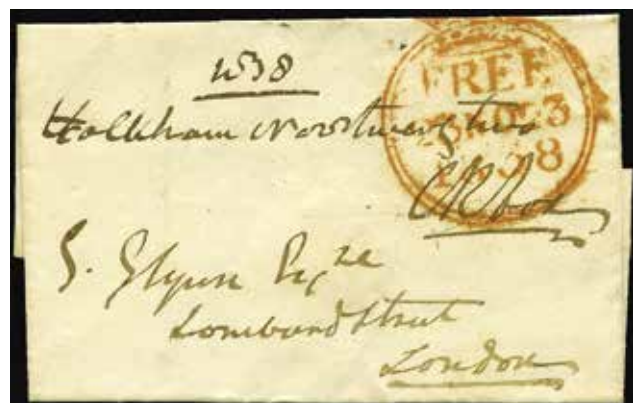 1838
Holkham November two
FREE
23 NO 23
1838
G. Glynn Esqre
Lombard Street
London